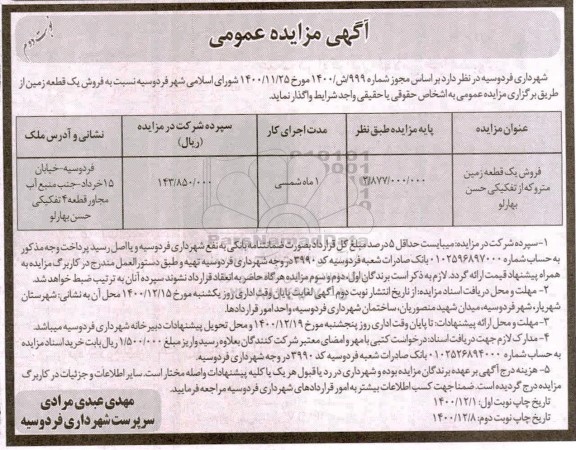 نوبت دوم
آگهی مزایده عمومی
شهرداری فردوسیه در نظر دارد بر اساس مجوز شماره ۹۹۹/ش/۱۴۰۰ مورخ ۱۴۰۰/۱۱/۲۵ شورای اسلامی شهر فردوسیه نسبت به فروش یک قطعه زمین از
طریق برگزاری مزایده عمومی به اشخاص حقوقی یا حقیقی واجد شرایط واگذار نماید.
عنوان مزایده
پایه مزایده طبق نظر
مدت اجرای کار
سپرده شرکت در مزایده (ریال)
نشانی و آدرس ملک
فروش یک قطعه زمین
متروکه از تفکیکی حسن
بهارلو
۲/۸۷۷/۰۰۰/۰۰۰
۱ ماه شمسی
۱۴۳/۸۵۰/۰۰۰
فردوسیه-خیابان
۱۵خرداد-جنب منبع آب
مجاور قطعه ۴ تفکیکی
حسن بهارلو
۱-سپرده شرکت در مزایده: میبایست حداقل ۵ درصد مبلغ کل قرارداد بصورت ضمانتنامه بانکی به نفع شهرداری فردوسیه و یا اصل رسید پرداخت وجه مذکور
به حساب شماره ۰۱۰۲۵۹۶۸۹۷۰۰۰ بانک صادرات شعبه فردوسیه کد ۳۹۹۰ در وجه شهرداری فردوسیه تهیه و طبق دستورالعمل مندرج در کاربرگ مزایده به
همراه پیشنهاد قیمت ارائه گردد. لازم به ذکر است برندگان اول، دوم و سوم مزایده هرگاه حاضر به انعقاد قرارداد نشوند سپرده آنان به ترتیب ضبط خواهد شد.
۲- مهلت و محل دریافت اسناد مزایده: از تاریخ انتشار نوبت دوم آگهی لغایت پایان وقت اداری روز یکشنبه مورخ ۱۴۰۰/۱۲/۱۵ محل آن به نشانی: شهرستان
شهریار، شهر فردوسیه، میدان شهید منصوریان، ساختمان شهرداری فردوسیه، واحد امور قراردادها.
۳- مهلت و محل ارائه پیشنهادات: تا پایان وقت اداری روز پنجشنبه مورخ ۱۴۰۰/۱۲/۱۹ و محل تحویل پیشنهادات دبیرخانه شهرداری فردوسیه میباشد.
۴- مدارک لازم جهت دریافت اسناد: درخواست کتبی با مهر و امضای معتبر شرکت کنندگان بعلاوه رسید واریز مبلغ ۱/۵۰۰/۰۰۰ ریال بابت خرید اسناد مزایده
به حساب شماره ۰۱۰۲۵۲۶۸۹۴۰۰۰ بانک صادرات شعبه فردوسیه کد ۳۹۹۰ در وجه شهرداری فردوسیه.
۵- هزینه درج آگهی بر عهده برندگان مزایده بوده و شهرداری در رد یا قبول هر یک یا کلیه پیشنهادات واصله مختار است. سایر اطلاعات و جزئیات در کاربرگ
مزایده درج گردیده است. ضمنا جهت کسب اطلاعات بیشتر به امور قراردادهای شهرداری فردوسیه مراجعه فرمایید.
تاریخ چاپ نوبت اول: ۱۴۰۰/۱۲/۱
تاریخ چاپ نوبت دوم: ۱۴۰۰/۱۲/۸
مهدی عبدی مرادی
سرپرست شهرداری فردوسیه